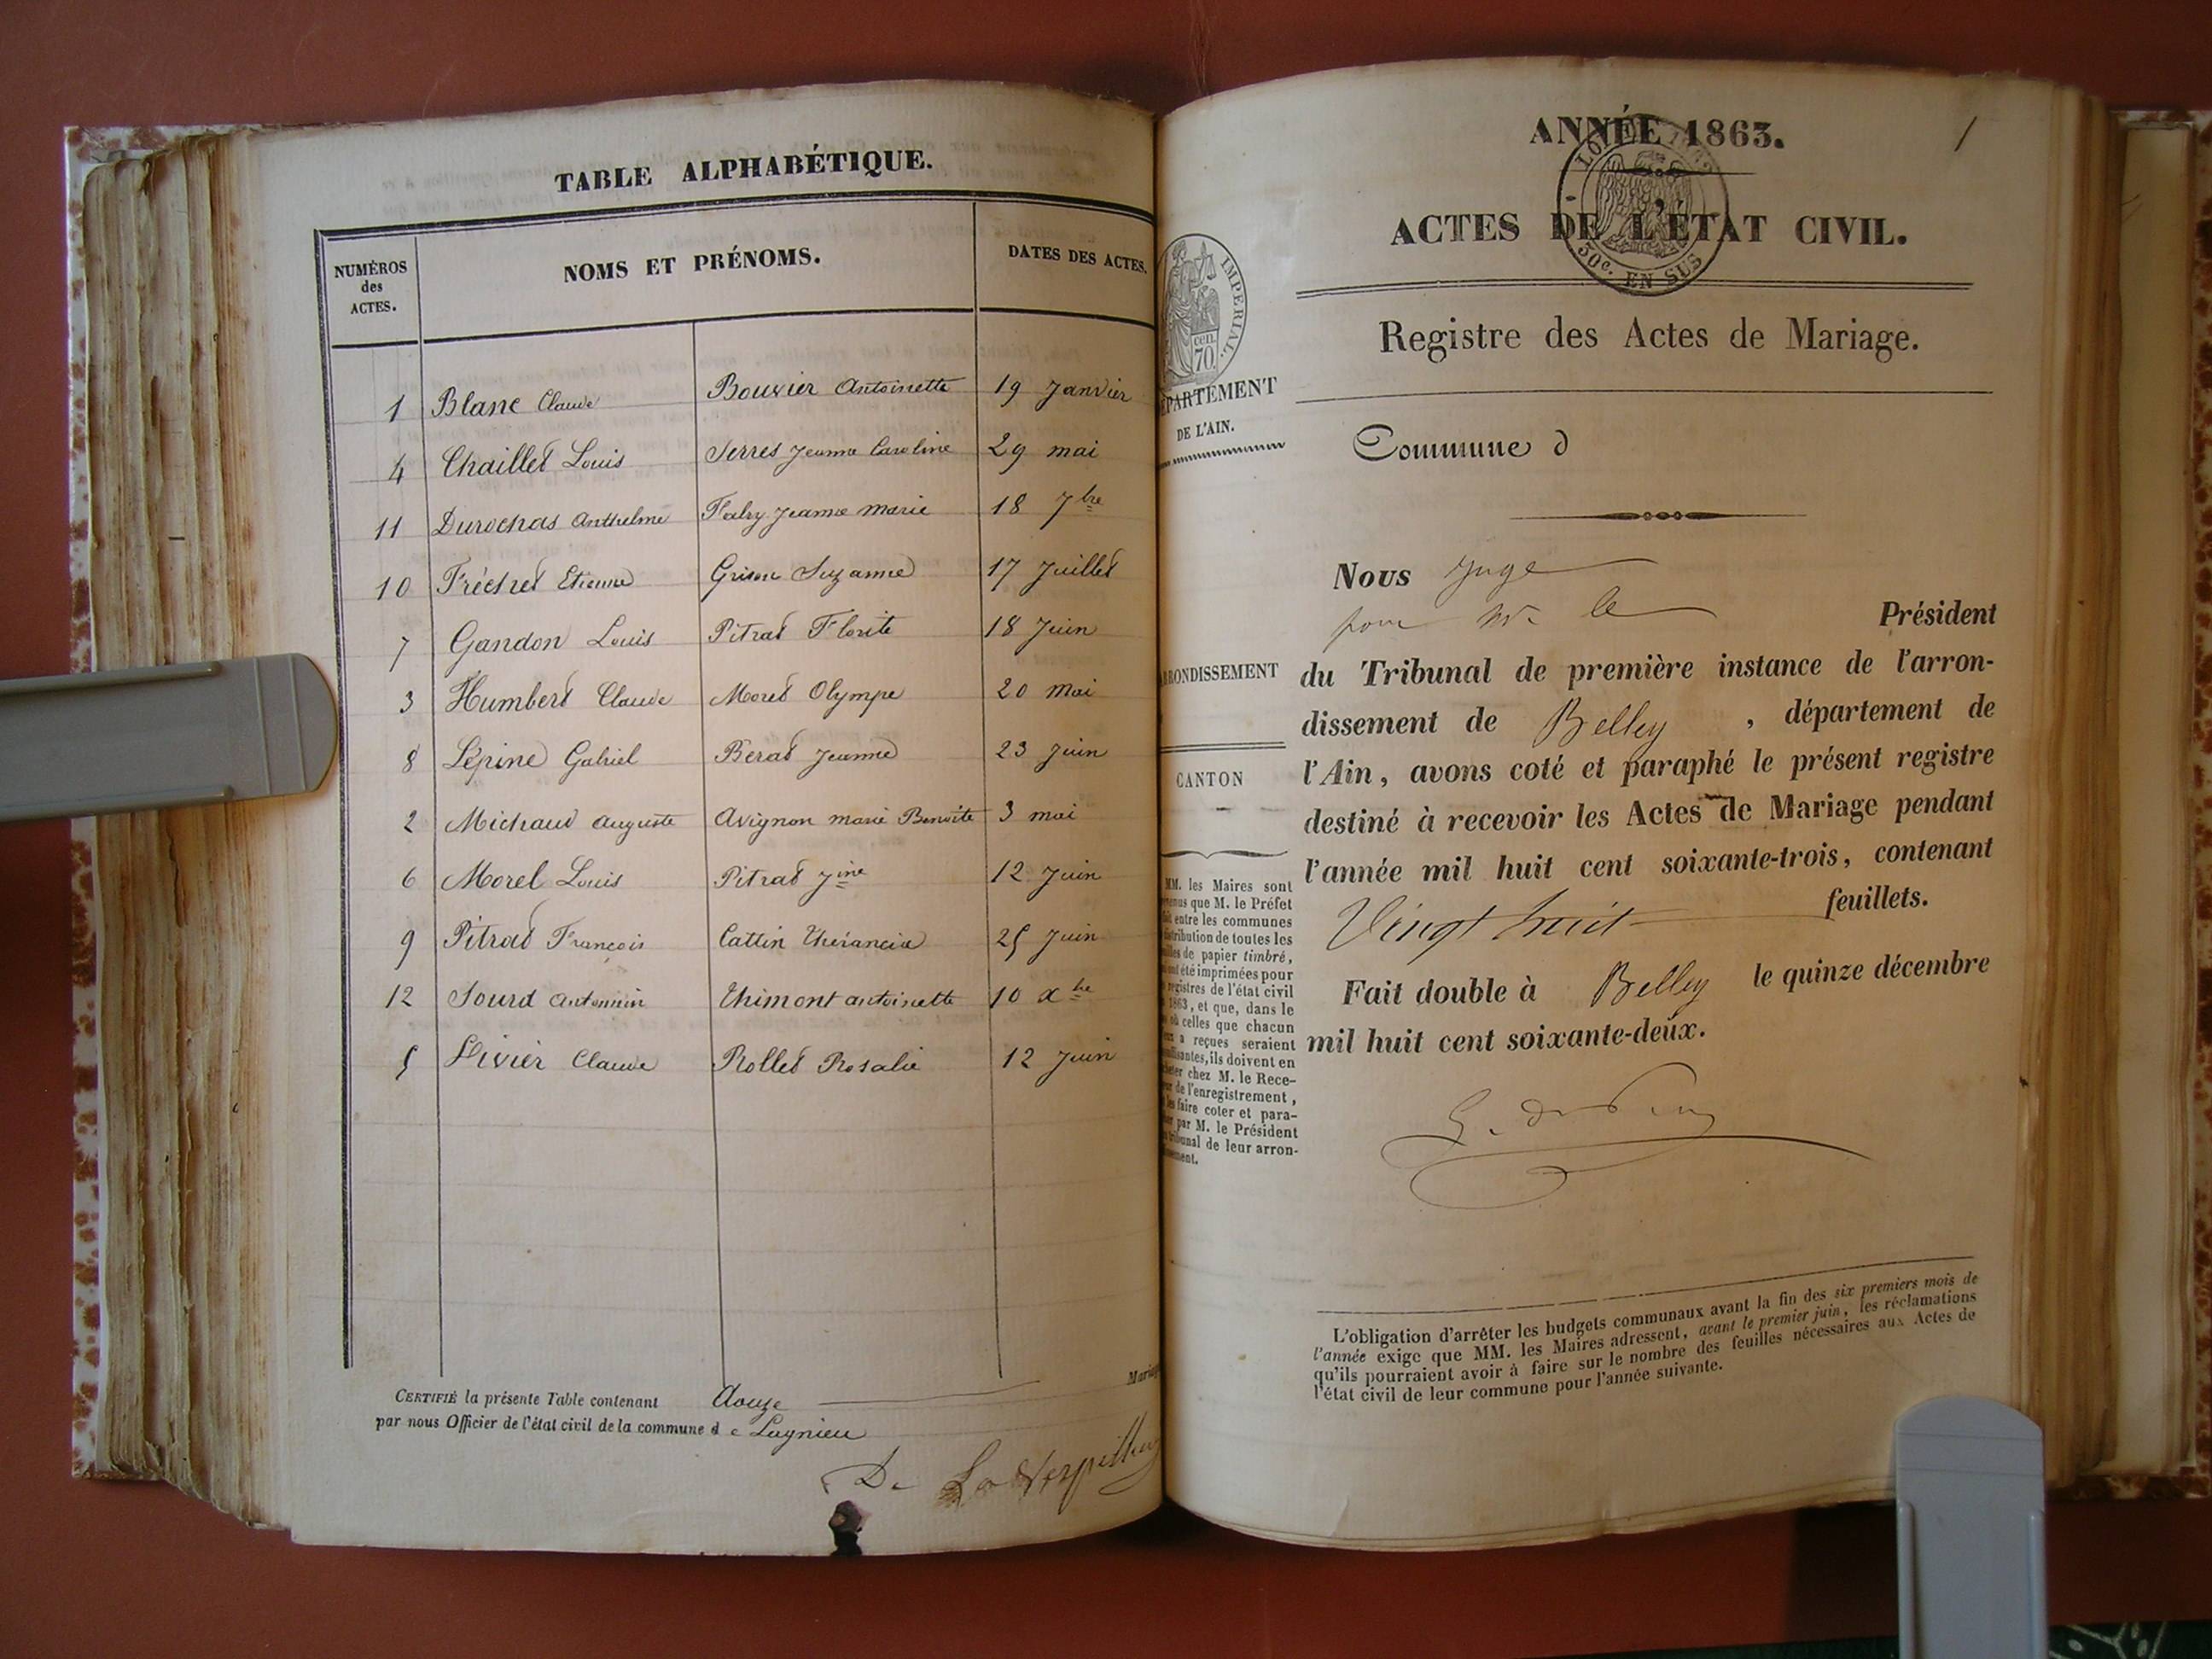 TABLE ALPHABÉTIQUE.
NUMÉROS des ACTES. NOMS ET PRÉNOMS. DATES DES ACTES.
1 Blanc Claude Bouvier Antoinette 19 Janvier
4 Chaillet Louis Serres Jeanne Caroline 29 mai
11 Durochas Anthelme Falry Jeanne Marie 18 7bre
10 Fréchet Etienne Grison Suzanne 17 Juillet
7 Gandon Louis Pitrat Florite 18 Juin
3 Humbert Claude Moret Olympe 20 Mai
8 Lépine Gabriel Berat Jeanne 23 Juin
2 Michaud Auguste Avignon Marie Benoite 3 mai
6 Morel Louis Pitrat Jine 12 Juin
9 Pitrat François Cattin 25 Juin
12 Sourd Antonnin Thimont Antoinette 10 Xbre
5 Vivier Claude Rollet Rosalie 12 Juin
Mariag
CERTIFIÉ la présente Table contenant douze
par nous Officier de l'état civil de la commune de Lagnieu
De La Verpillière
1
ANNÉE 1863.
ACTES DE L'ÉTAT CIVIL.
50c. EN SUS
IMPERIAL.
cen. 70.
Registre des Actes de Mariage.
ÉPARTEMENT
DE L'AIN.
Commune d
Nous Juge
pour Mr. le Président
RRONDISSEMENT
du Tribunal de première instance de l'arron-
dissement de Belley, département de
CANTON
l'Ain, avons coté et paraphé le présent registre
destiné à recevoir les Actes de Mariage pendant
l'année mil huit cent soixante-trois, contenant
Vingt huit feuillets.
Fait double à Belley le quinze décembre
mil huit cent soixante-deux.
MM. les Maires sont
enus que M. le Préfet
ait entre les communes
istribution de toutes les
illes de papier timbré,
ont été imprimées pour
registres de l'état civil
1863, et que, dans le
où celles que chacun
eux a reçues seraient
uffisantes, ils doivent en
heter chez M. le Rece-
eur de l'enregistrement,
les faire coter et para-
her par M. le Président
tribunal de leur arron-
ssement.
L'obligation d'arrêter les budgets communaux avant la fin des six premiers mois de
l'année exige que MM. les Maires adressent, avant le premier juin, les réclamations
qu'ils pourraient avoir à faire sur le nombre des feuilles nécessaires aux Actes de
l'état civil de leur commune pour l'année suivante.